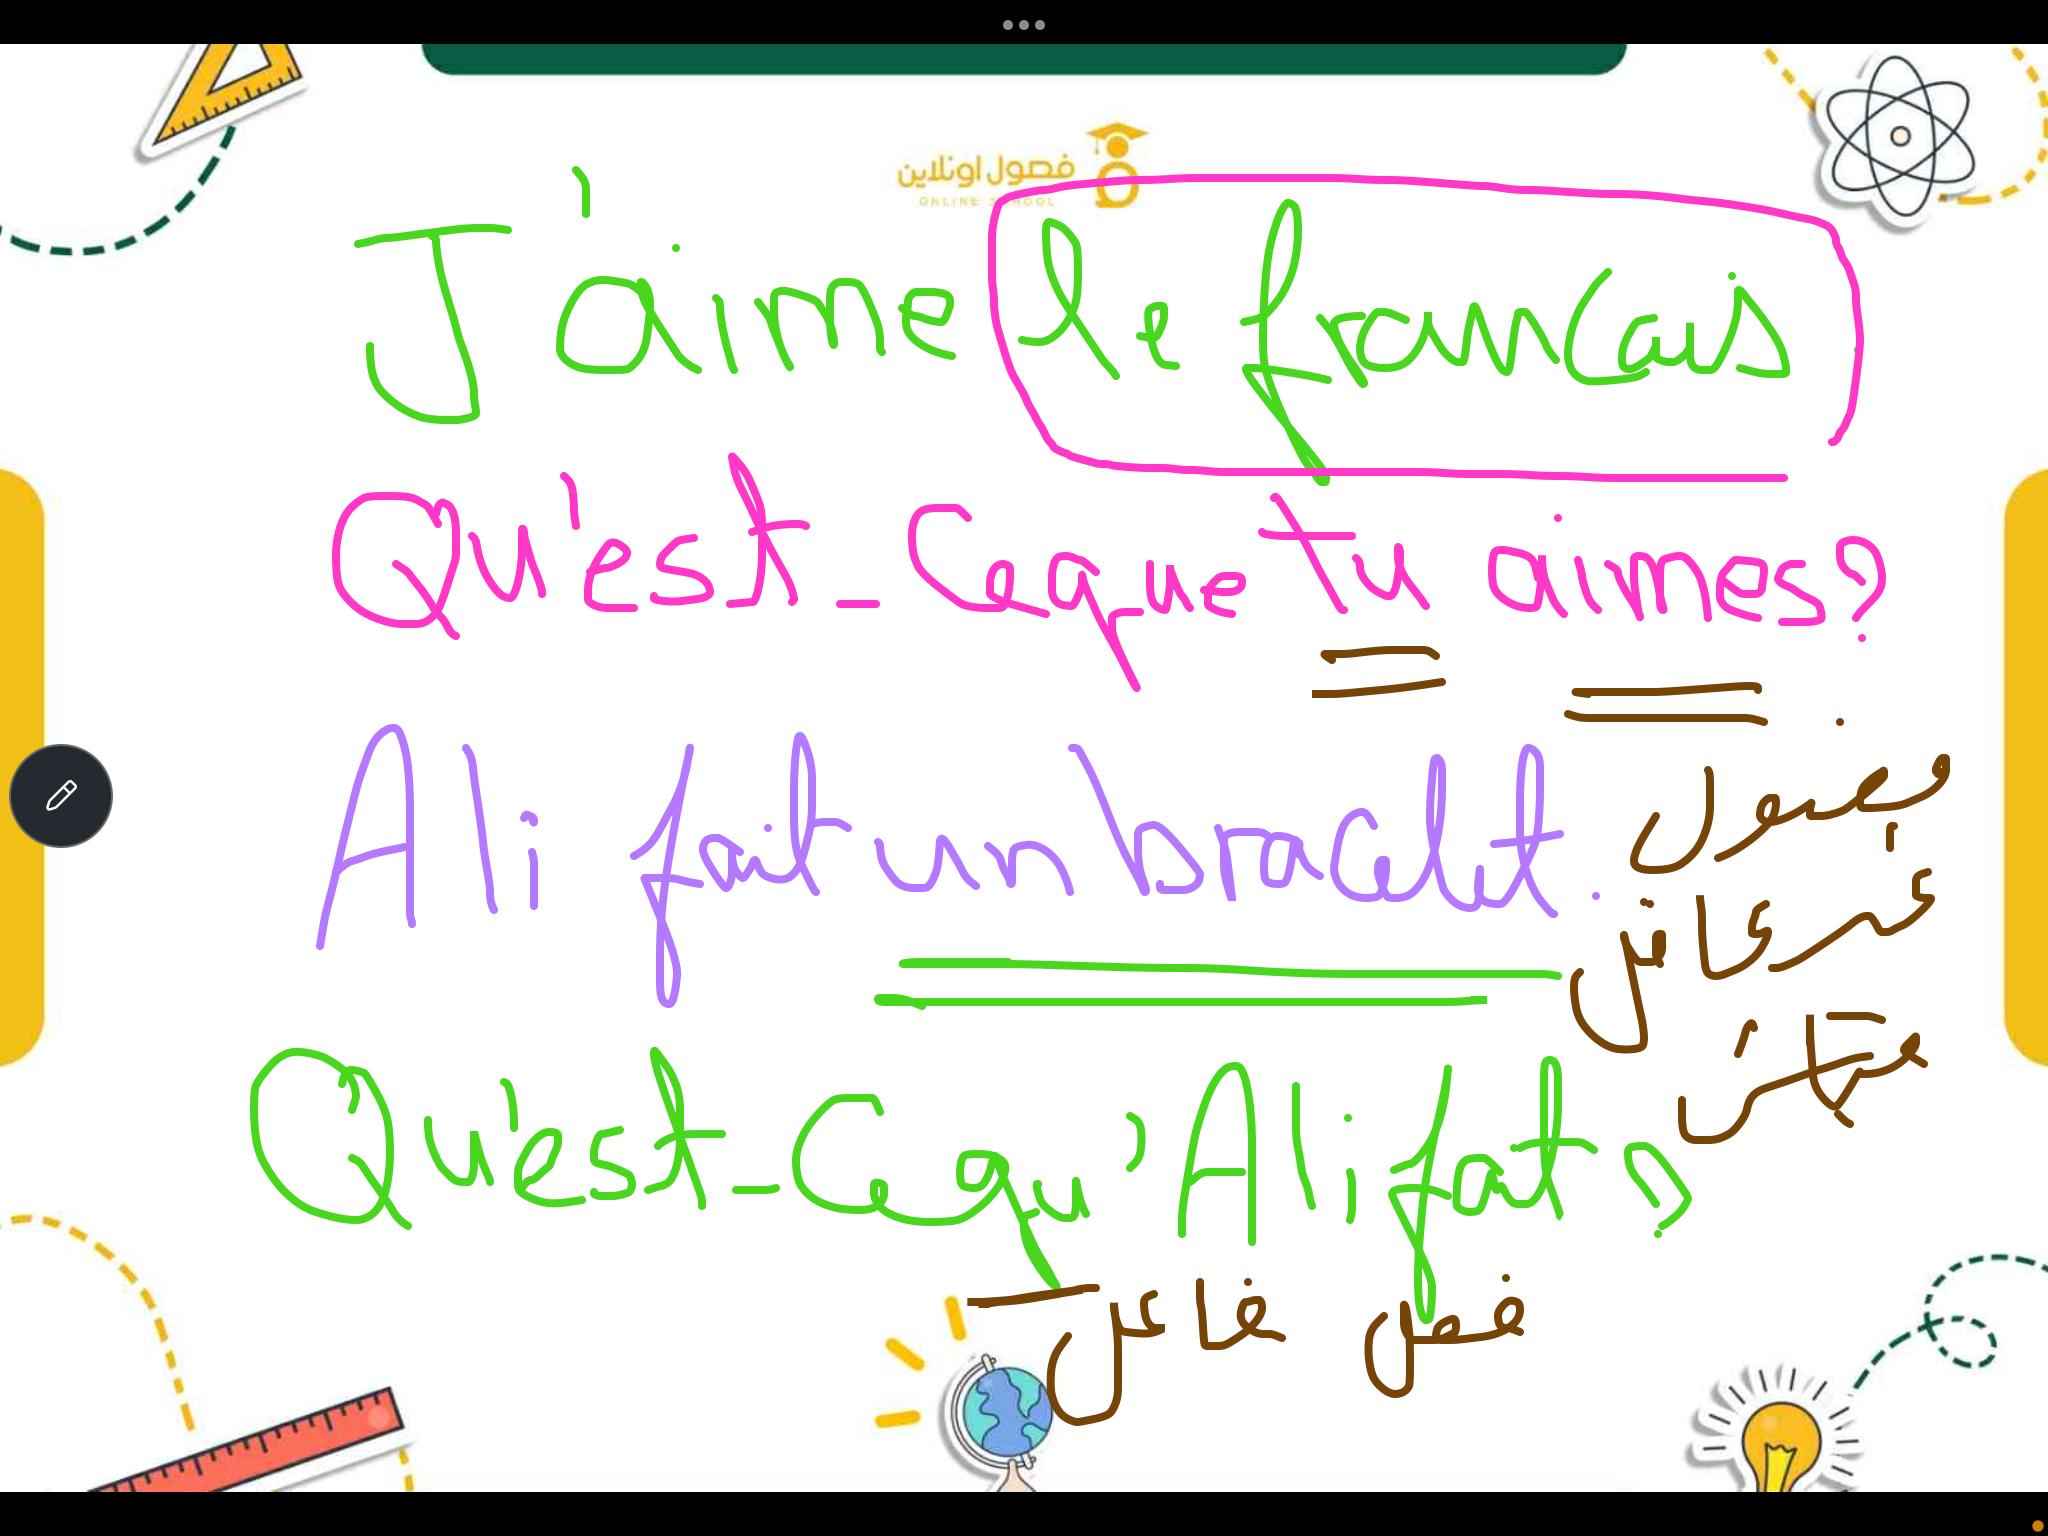 فصول اونلاين
ONLINE SCHOOL
J'aime le francais
Qu'est-ce que tu aimes?
Ali fait un bracelet.
Qu'est-ce qu'Ali fait?
فاعل